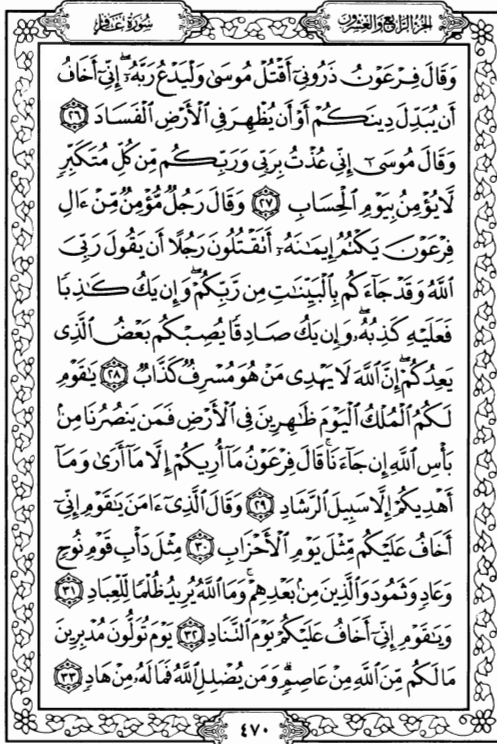 الجزء الرابع والعشرون
سورة غافر
وَقَالَ فِرْعَوْنُ ذَرُونِىٓ أَقْتُلْ مُوسَىٰ وَلْيَدْعُ رَبَّهُۥٓ ۖ إِنِّىٓ أَخَافُ
أَن يُبَدِّلَ دِينَكُمْ أَوْ أَن يُظْهِرَ فِى ٱلْأَرْضِ ٱلْفَسَادَ ٢٦
وَقَالَ مُوسَىٰٓ إِنِّى عُذْتُ بِرَبِّى وَرَبِّكُم مِّن كُلِّ مُتَكَبِّرٍۢ
لَّا يُؤْمِنُ بِيَوْمِ ٱلْحِسَابِ ٢٧ وَقَالَ رَجُلٌۭ مُّؤْمِنٌۭ مِّنْ ءَالِ
فِرْعَوْنَ يَكْتُمُ إِيمَٰنَهُۥٓ أَتَقْتُلُونَ رَجُلًا أَن يَقُولَ رَبِّىَ
ٱللَّهُ وَقَدْ جَآءَكُم بِٱلْبَيِّنَٰتِ مِن رَّبِّكُمْ ۖ وَإِن يَكُ كَٰذِبًۭا
فَعَلَيْهِ كَذِبُهُۥ ۖ وَإِن يَكُ صَادِقًۭا يُصِبْكُم بَعْضُ ٱلَّذِى
يَعِدُكُمْ ۖ إِنَّ ٱللَّهَ لَا يَهْدِى مَنْ هُوَ مُسْرِفٌۭ كَذَّابٌۭ ٢٨ يَٰقَوْمِ
لَكُمُ ٱلْمُلْكُ ٱلْيَوْمَ ظَٰهِرِينَ فِى ٱلْأَرْضِ فَمَن يَنصُرُنَا مِنۢ
بَأْسِ ٱللَّهِ إِن جَآءَنَا ۚ قَالَ فِرْعَوْنُ مَآ أُرِيكُمْ إِلَّا مَآ أَرَىٰ وَمَآ
أَهْدِيكُمْ إِلَّا سَبِيلَ ٱلرَّشَادِ ٢٩ وَقَالَ ٱلَّذِىٓ ءَامَنَ يَٰقَوْمِ إِنِّىٓ
أَخَافُ عَلَيْكُم مِّثْلَ يَوْمِ ٱلْأَحْزَابِ ٣٠ مِثْلَ دَأْبِ قَوْمِ نُوحٍۢ
وَعَادٍۢ وَثَمُودَ وَٱلَّذِينَ مِنۢ بَعْدِهِمْ ۚ وَمَا ٱللَّهُ يُرِيدُ ظُلْمًۭا لِّلْعِبَادِ ٣١
وَيَٰقَوْمِ إِنِّىٓ أَخَافُ عَلَيْكُمْ يَوْمَ ٱلتَّنَادِ ٣٢ يَوْمَ تُوَلُّونَ مُدْبِرِينَ
مَا لَكُم مِّنَ ٱللَّهِ مِنْ عَاصِمٍۢ ۗ وَمَن يُضْلِلِ ٱللَّهُ فَمَا لَهُۥ مِنْ هَادٍۢ ٣٣
٤٧٠